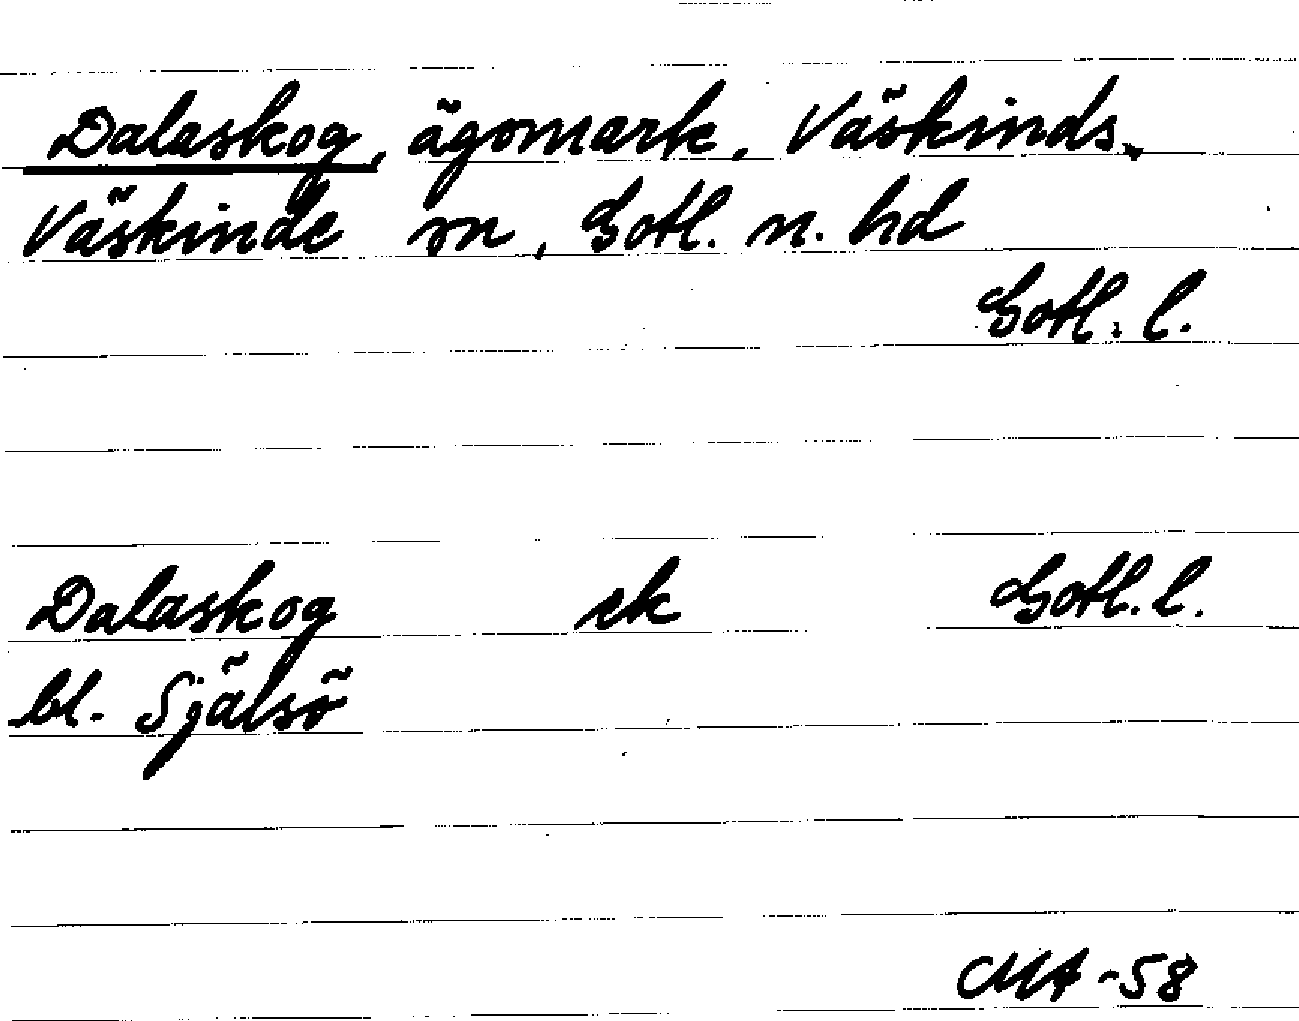 Dalaskog, ägomark. Väskinds,
Väskinde sn, Gotl. n. hd
Gotl. l.
Dalaskog ek Gotl. l.
bl. Själsö
CMA -58